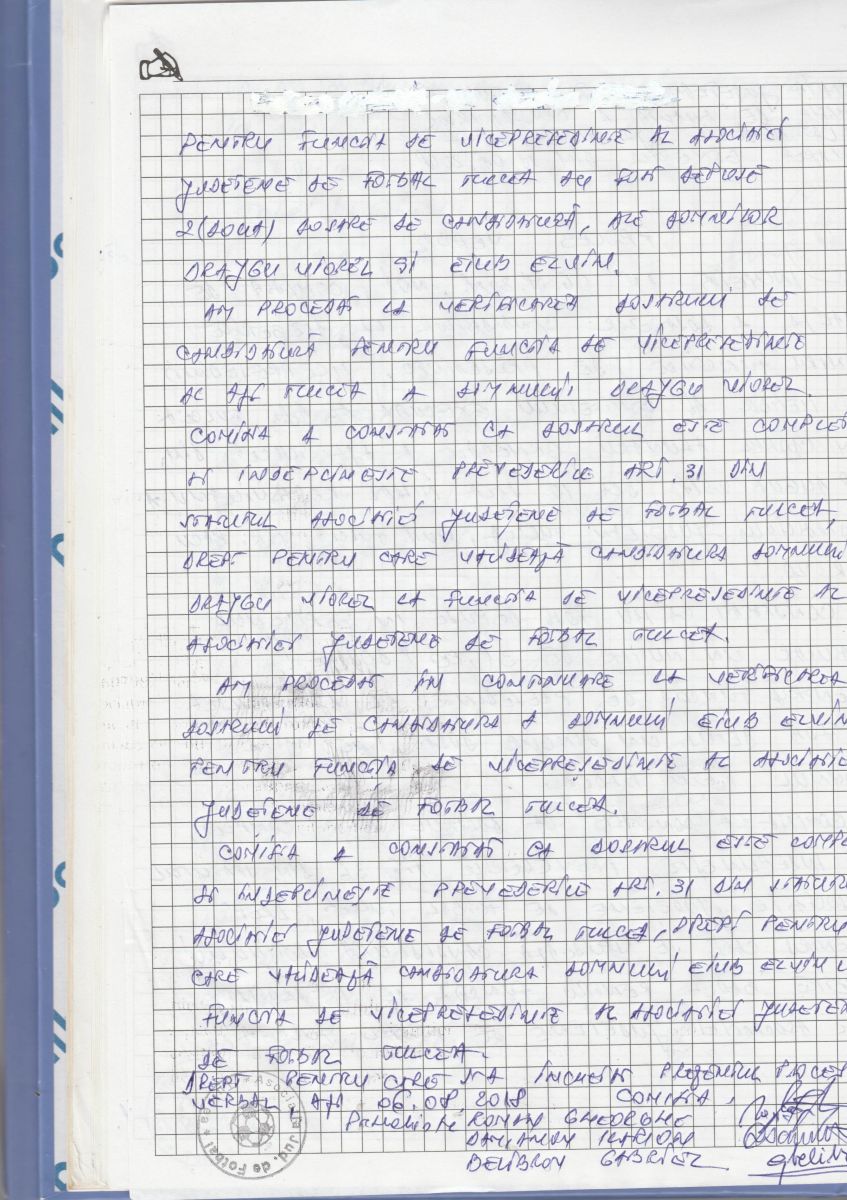 PENTRU FUNCTIA DE VICEPRESEDINTE AL ASOCIATIEI
JUDETENE DE FOTBAL TULCEA AU FOST DEPUSE
2 (DOUA) DOSARE DE CANDIDATURĂ, ALE DOMNILOR
DRAYGU VIOREL SI EIUB ELVIN.
AM PROCEDAT LA VERIFICAREA DOSARULUI DE
CANDIDATURĂ PENTRU FUNCTIA DE VICEPRESEDINTE
AL AJF TULCEA A DOMNULUI DRAYGU VIOREL.
COMISIA A CONSTATAT CA DOSARUL ESTE COMPLET
SI INDEPLINESTE PREVEDERILE ART. 31 DIN
STATUTUL ASOCIATIEI JUDETENE DE FOTBAL TULCEA,
DREPT PENTRU CARE VALIDEAZĂ CANDIDATURA DOMNULUI
DRAYGU VIOREL LA FUNCTIA DE VICEPRESEDINTE AL
ASOCIATIEI JUDETENE DE FOTBAL TULCEA.
AM PROCEDAT IN CONTINUARE LA VERIFICAREA
DOSARULUI DE CANDIDATURA A DOMNULUI EIUB ELVIN
PENTRU FUNCTIA DE VICEPRESEDINTE AL ASOCIATIEI
JUDETENE DE FOTBAL TULCEA.
COMISIA A CONSTATAT CA DOSARUL ESTE COMPL
SI INDEPLINESTE PREVEDERILE ART. 31 DIN STATUTUL
ASOCIATIEI JUDETENE DE FOTBAL TULCEA, DREPT PENTRU
CARE VALIDEAZĂ CANDIDATURA DOMNULUI EIUB ELVIN L
FUNCTIA DE VICEPRESEDINTE AL ASOCIATIEI JUDETEN
DE FOTBAL TULCEA.
DREPT PENTRU CARE S-A INCHEIAT PREZENTUL PROCES
VERBAL, AZI 06.08.2018 COMISIA,
ROMAN GHEORGHE
DAMIAN ILARION
BELIBROV GABRIEL
Asociatia Jud. de Fotbal